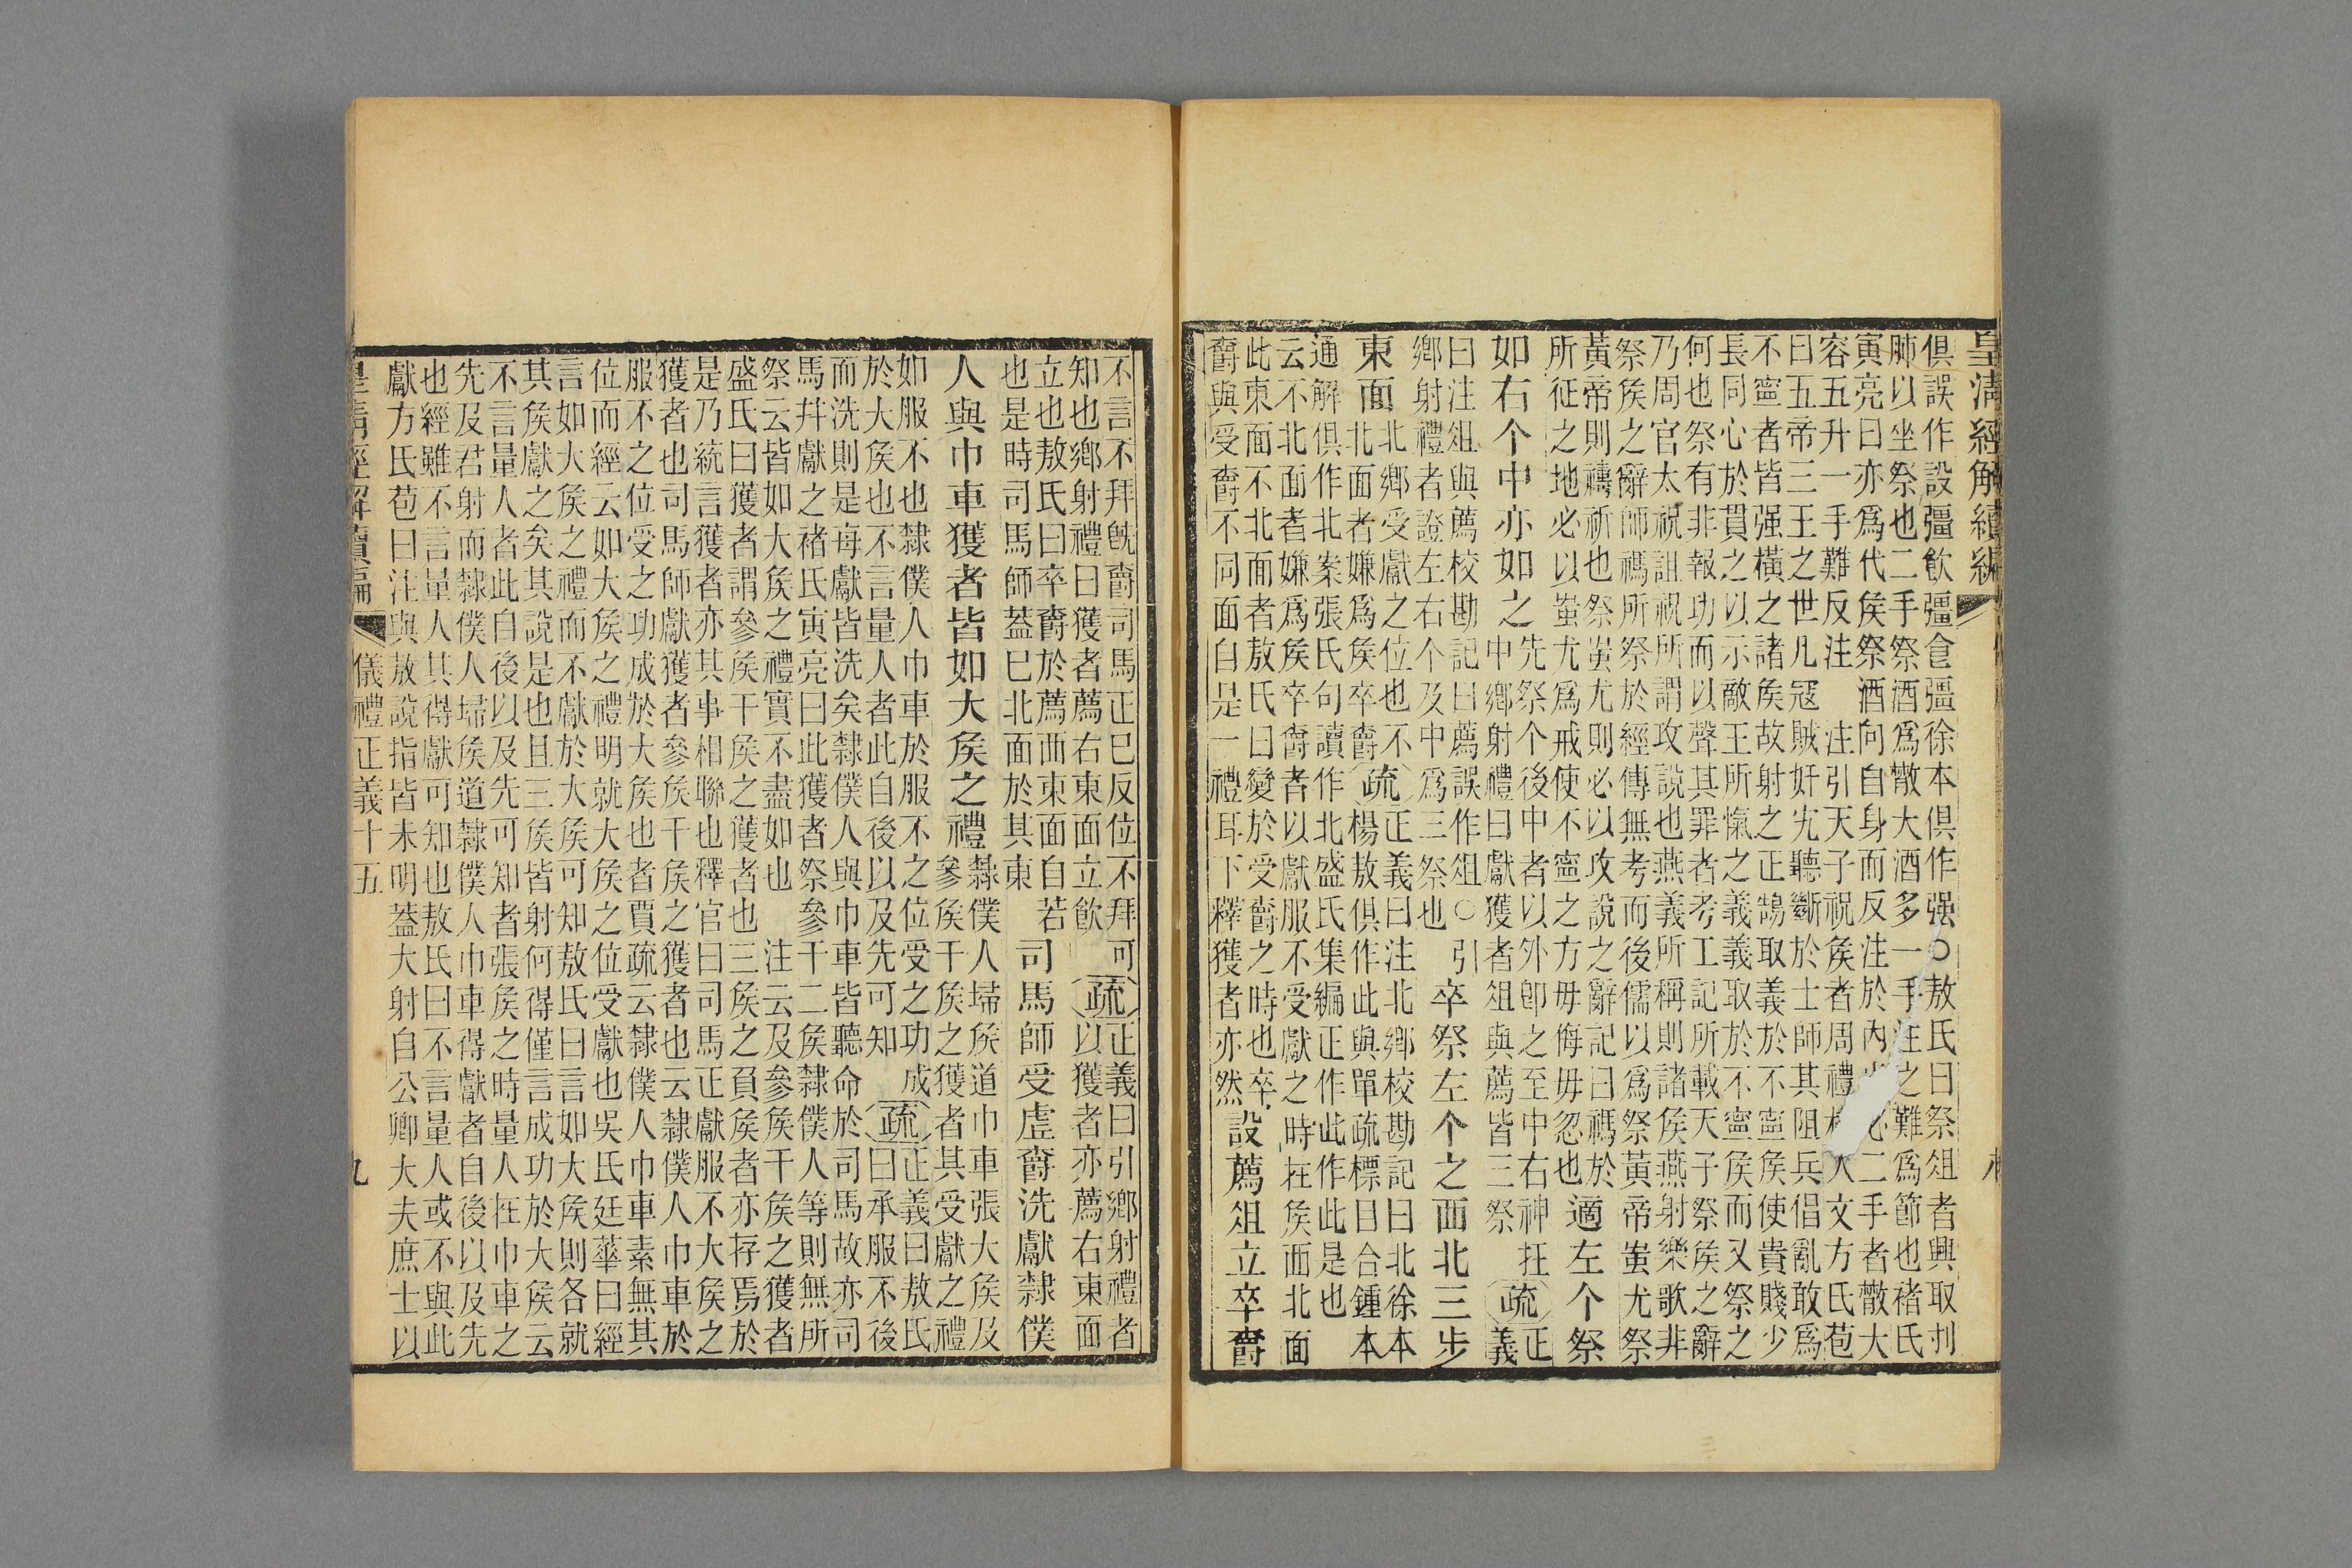 皇清經解續編
俱誤作設彊飲彊食彊徐本俱作强○敖氏曰祭俎者興取刌
肺以坐祭也二手祭酒爲散大酒多一手注之難爲節也褚氏
寅亮曰亦爲代矦祭酒向自身而反注於內必二手者散大
容五升一手難反注　注引天子祝矦者周禮人文方氏苞
曰五帝三王之世凡冦賊奸宄聽斷於士師其阻兵倡亂敢爲
不寧者皆强橫之諸矦故射之正鵠取義於不寧矦使貴賤少
長同心於貫之以示敵王所愾之義義取於不寧矦而又祭之
何也祭有非報功而以聲其罪者考工記所載天子祭矦之辭
乃周官太祝詛祝所謂攻說也燕義所稱則諸矦燕射樂歌非
祭矦之辭師禡所祭於經傳無考而後儒以爲祭黃帝蚩尤祭
黃帝則禱祈也祭蚩尤則必以攻說之辭記曰禡於
所征之地必以蚩尤爲戒使不寧之方毋侮毋忽也適左个祭
如右个中亦如之先祭个後中者以外卽之至中右神在
中鄉射禮曰獻獲者俎與薦皆三祭疏正義
曰注俎與薦校勘記曰薦誤作俎○引
鄉射禮者證左右个及中爲三祭也卒祭左个之西北三步
東面北鄉受獻之位也不
北面者嫌爲矦卒爵疏正義曰注北鄉校勘記曰北徐本
楊敖俱作此與單疏標目合鍾本
通解俱作北案張氏句讀作北盛氏集編正作此作此是也
云不北面者嫌爲矦卒爵者以獻服不受獻之時在矦西北面
此東面不北面者敖氏曰變於受爵之時也卒
爵與受爵不同面自是一禮耳下釋獲者亦然設薦俎立卒爵
不言不拜旣爵司馬正巳反位不拜可
知也鄉射禮曰獲者薦右東面立飲疏正義曰引鄉射禮者
以獲者亦薦右東面
立也敖氏曰卒爵於薦西東面自若
也是時司馬師蓋巳北面於其東司馬師受虛爵洗獻隸僕
人與巾車獲者皆如大矦之禮隸僕人埽矦道巾車張大矦及
參矦干矦之獲者其受獻之禮
如服不也隸僕人巾車於服不之位受之功成
於大矦也不言量人者此自後以及先可知疏正義曰敖氏
曰承服不後
而洗則是每獻皆洗矣隸僕人與巾車皆聽命於司馬故亦司
馬幷獻之褚氏寅亮曰此獲者祭參干二矦隸僕人等則無所
祭云皆如大矦之禮實不盡如也　注云及參矦干矦之獲者
盛氏曰獲者謂參矦干矦之獲者也三矦之負矦者亦存焉於
是乃統言獲者亦其事相聯也釋官曰司馬正獻服不大矦之
獲者也司馬師獻獲者參矦干矦之獲者也云隸僕人巾車於
服不之位受之功成於大矦也者賈疏云隸僕人巾車素無其
位而經云如大矦之禮明就大矦之位受獻也吳氏廷華曰經
言如大矦之禮而不獻於大矦可知敖氏曰言如大矦則各就
其矦獻之矣其說是也且三矦皆射何得僅言成功於大矦云
不言量人者此自後以及先可知者張矦之時量人在巾車之
先及君射而隸僕人埽矦道隸僕人巾車得獻者自後以及先
也經雖不言量人其得獻可知也敖氏曰不言量人或不與此
獻方氏苞曰注與敖說指皆未明蓋大射自公卿大夫庶士以
皇清經解續編　儀禮正義十五　九